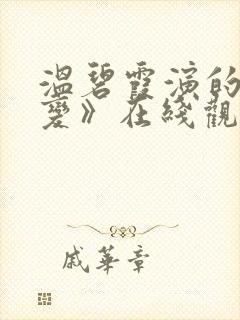 溫碧霞演的
變》在綫觀
戚華章